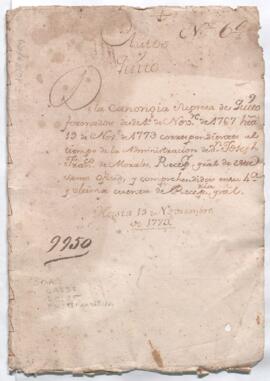 Autos
Nº. 6
Quito
De la Canongia Supresa de Quito
formados desde 1º de Nov.e de 1767 hta
13 de Nov.e de 1773 correspondientes al
tiempo de la Administracion de Dn. Joseph
Franco. de Morales Recepr. gral de este
Santo Oficio, y comprehendidos en su 4ª
y ultima cuenta de Recepria. gral.
Hasta 13 de Noviembre
de 1773
9950